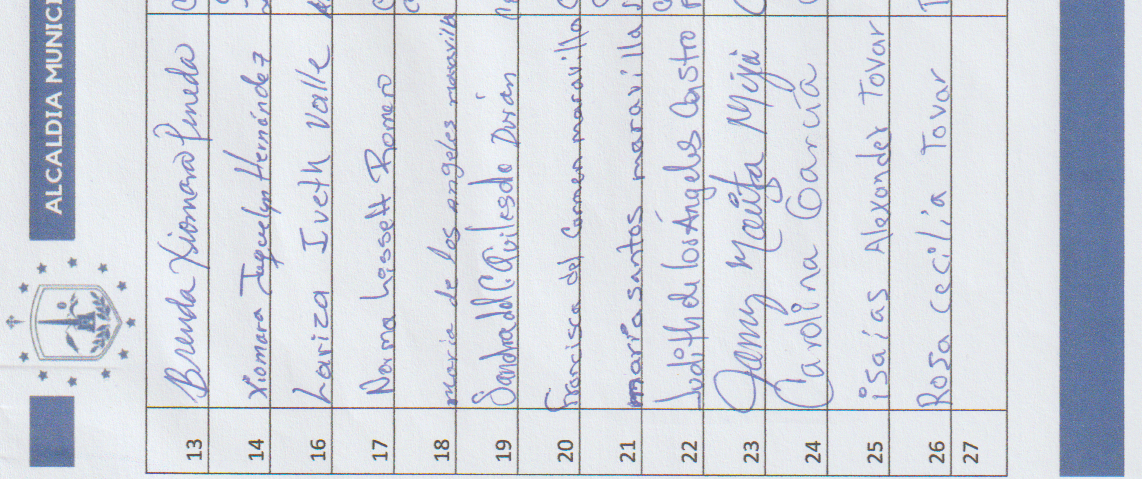 ALCALDIA MUNICI
13 Brenda Xiomara Pineda
14 Xiomara Jaquelyn Hernández
16 Lariza Iveth Valle
17 Norma Lissett Romero
18 maria de los angeles maravilla
19 Sandra del C Avilesdo Durán
20 Francisca del Carmen maravilla
21 maria santos maravilla
22 Judith de los Ángeles Castro
23 Meji
24 Carolina García
25 isaías Alexander Tovar
26 Rosa Cecilia Tovar
27